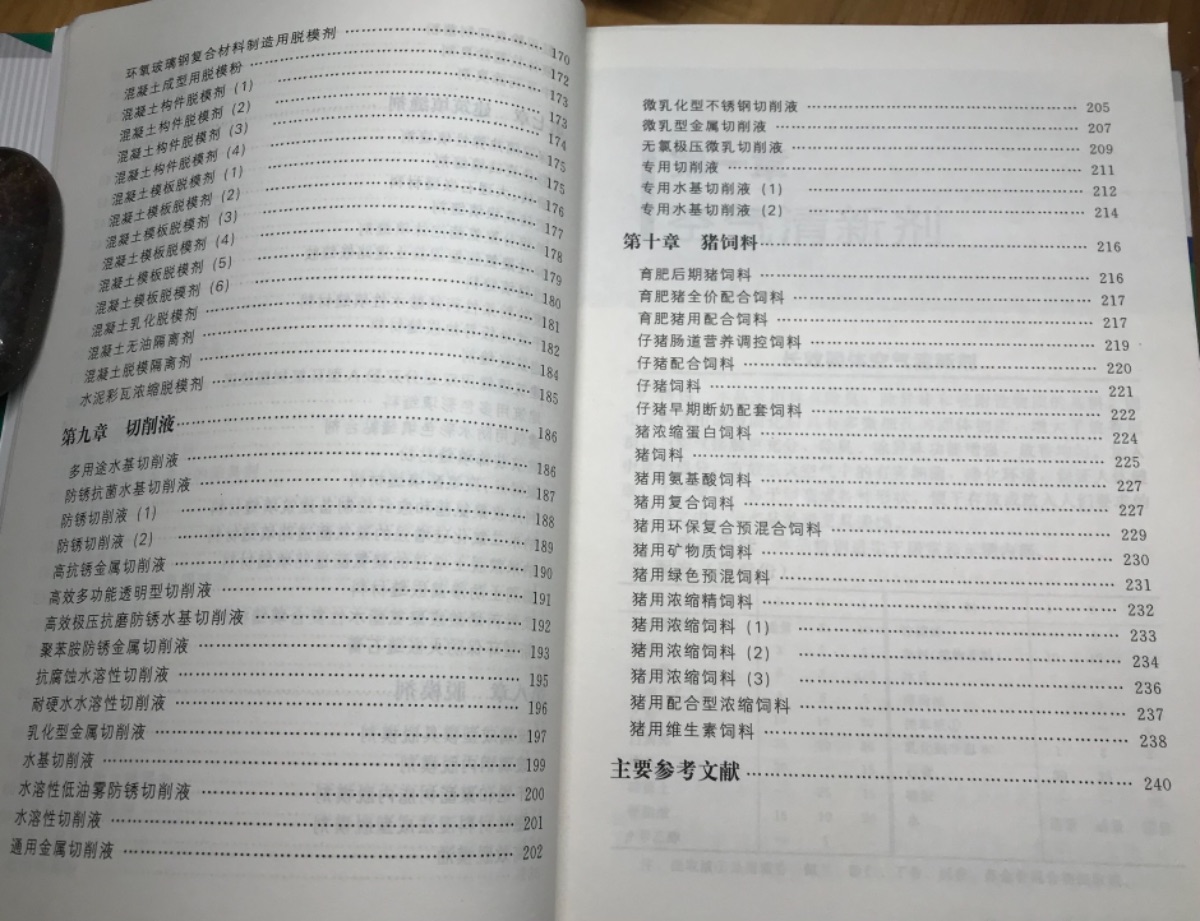 环氧玻璃钢复合材料制造用脱模剂 …… 170
混凝土成型用脱模粉 …… 172
混凝土构件脱模剂（1） …… 173
混凝土构件脱模剂（2） …… 173
混凝土构件脱模剂（3） …… 174
混凝土构件脱模剂（4） …… 175
混凝土模板脱模剂（1） …… 175
混凝土模板脱模剂（2） …… 176
混凝土模板脱模剂（3） …… 177
混凝土模板脱模剂（4） …… 178
混凝土模板脱模剂（5） …… 179
混凝土模板脱模剂（6） …… 180
混凝土乳化脱模剂 …… 181
混凝土无油隔离剂 …… 182
混凝土脱模隔离剂 …… 184
水泥彩瓦浓缩脱模剂 …… 185
第九章　切削液 …… 186
多用途水基切削液 …… 186
防锈抗菌水基切削液 …… 187
防锈切削液（1） …… 188
防锈切削液（2） …… 189
高抗锈金属切削液 …… 190
高效多功能透明型切削液 …… 191
高效极压抗磨防锈水基切削液 …… 192
聚苯胺防锈金属切削液 …… 193
抗腐蚀水溶性切削液 …… 195
耐硬水水溶性切削液 …… 196
乳化型金属切削液 …… 197
水基切削液 …… 199
水溶性低油雾防锈切削液 …… 200
水溶性切削液 …… 201
通用金属切削液 …… 202
微乳化型不锈钢切削液 …… 205
微乳型金属切削液 …… 207
无氯极压微乳切削液 …… 209
专用切削液 …… 211
专用水基切削液（1） …… 212
专用水基切削液（2） …… 214
第十章　猪饲料 …… 216
育肥后期猪饲料 …… 216
育肥猪全价配合饲料 …… 217
育肥猪用配合饲料 …… 217
仔猪肠道营养调控饲料 …… 219
仔猪配合饲料 …… 220
仔猪饲料 …… 221
仔猪早期断奶配套饲料 …… 222
猪浓缩蛋白饲料 …… 224
猪饲料 …… 225
猪用氨基酸饲料 …… 227
猪用复合饲料 …… 227
猪用环保复合预混合饲料 …… 229
猪用矿物质饲料 …… 230
猪用绿色预混饲料 …… 231
猪用浓缩精饲料 …… 232
猪用浓缩饲料（1） …… 233
猪用浓缩饲料（2） …… 234
猪用浓缩饲料（3） …… 236
猪用配合型浓缩饲料 …… 237
猪用维生素饲料 …… 238
主要参考文献 …… 240